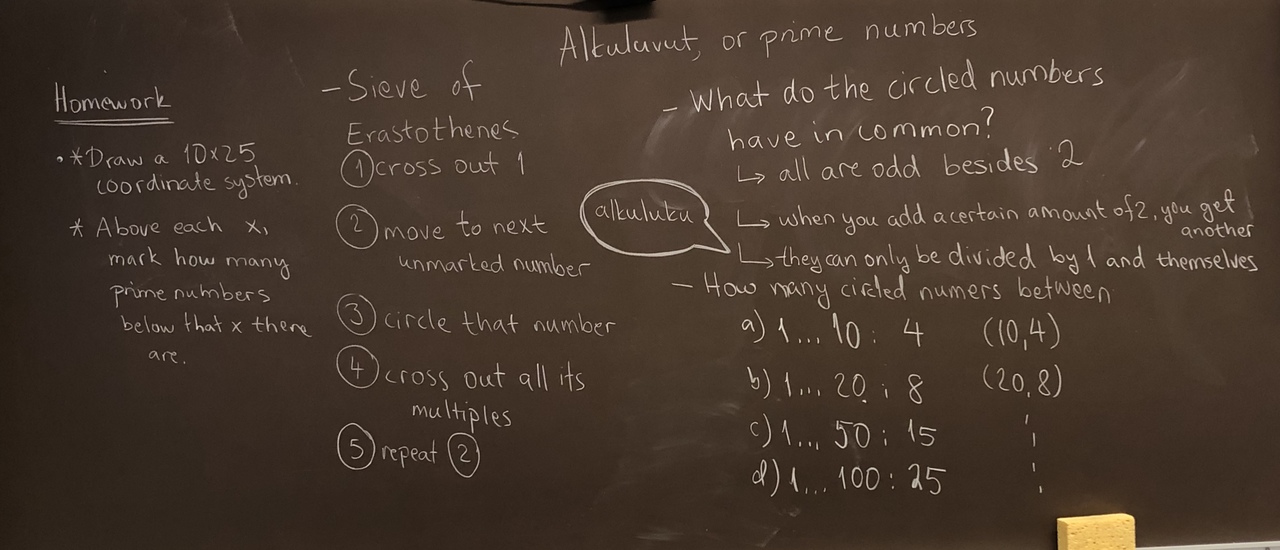 Alkuluvut, or prime numbers
Homework
• * Draw a 10x25
coordinate system.
* Above each x,
mark how many
prime numbers
below that x there
are.
- Sieve of
Erastothenes
① cross out 1
② move to next
unmarked number
③ circle that number
④ cross out all its
multiples
⑤ repeat ②
- What do the circled numbers
have in common?
↳ all are odd besides 2
alkuluku
↳ when you add a certain amount of 2, you get
another
↳ they can only be divided by 1 and themselves
- How many circled numers between
a) 1... 10: 4 (10,4)
b) 1... 20: 8 (20,8)
c) 1... 50: 15
d) 1... 100: 25